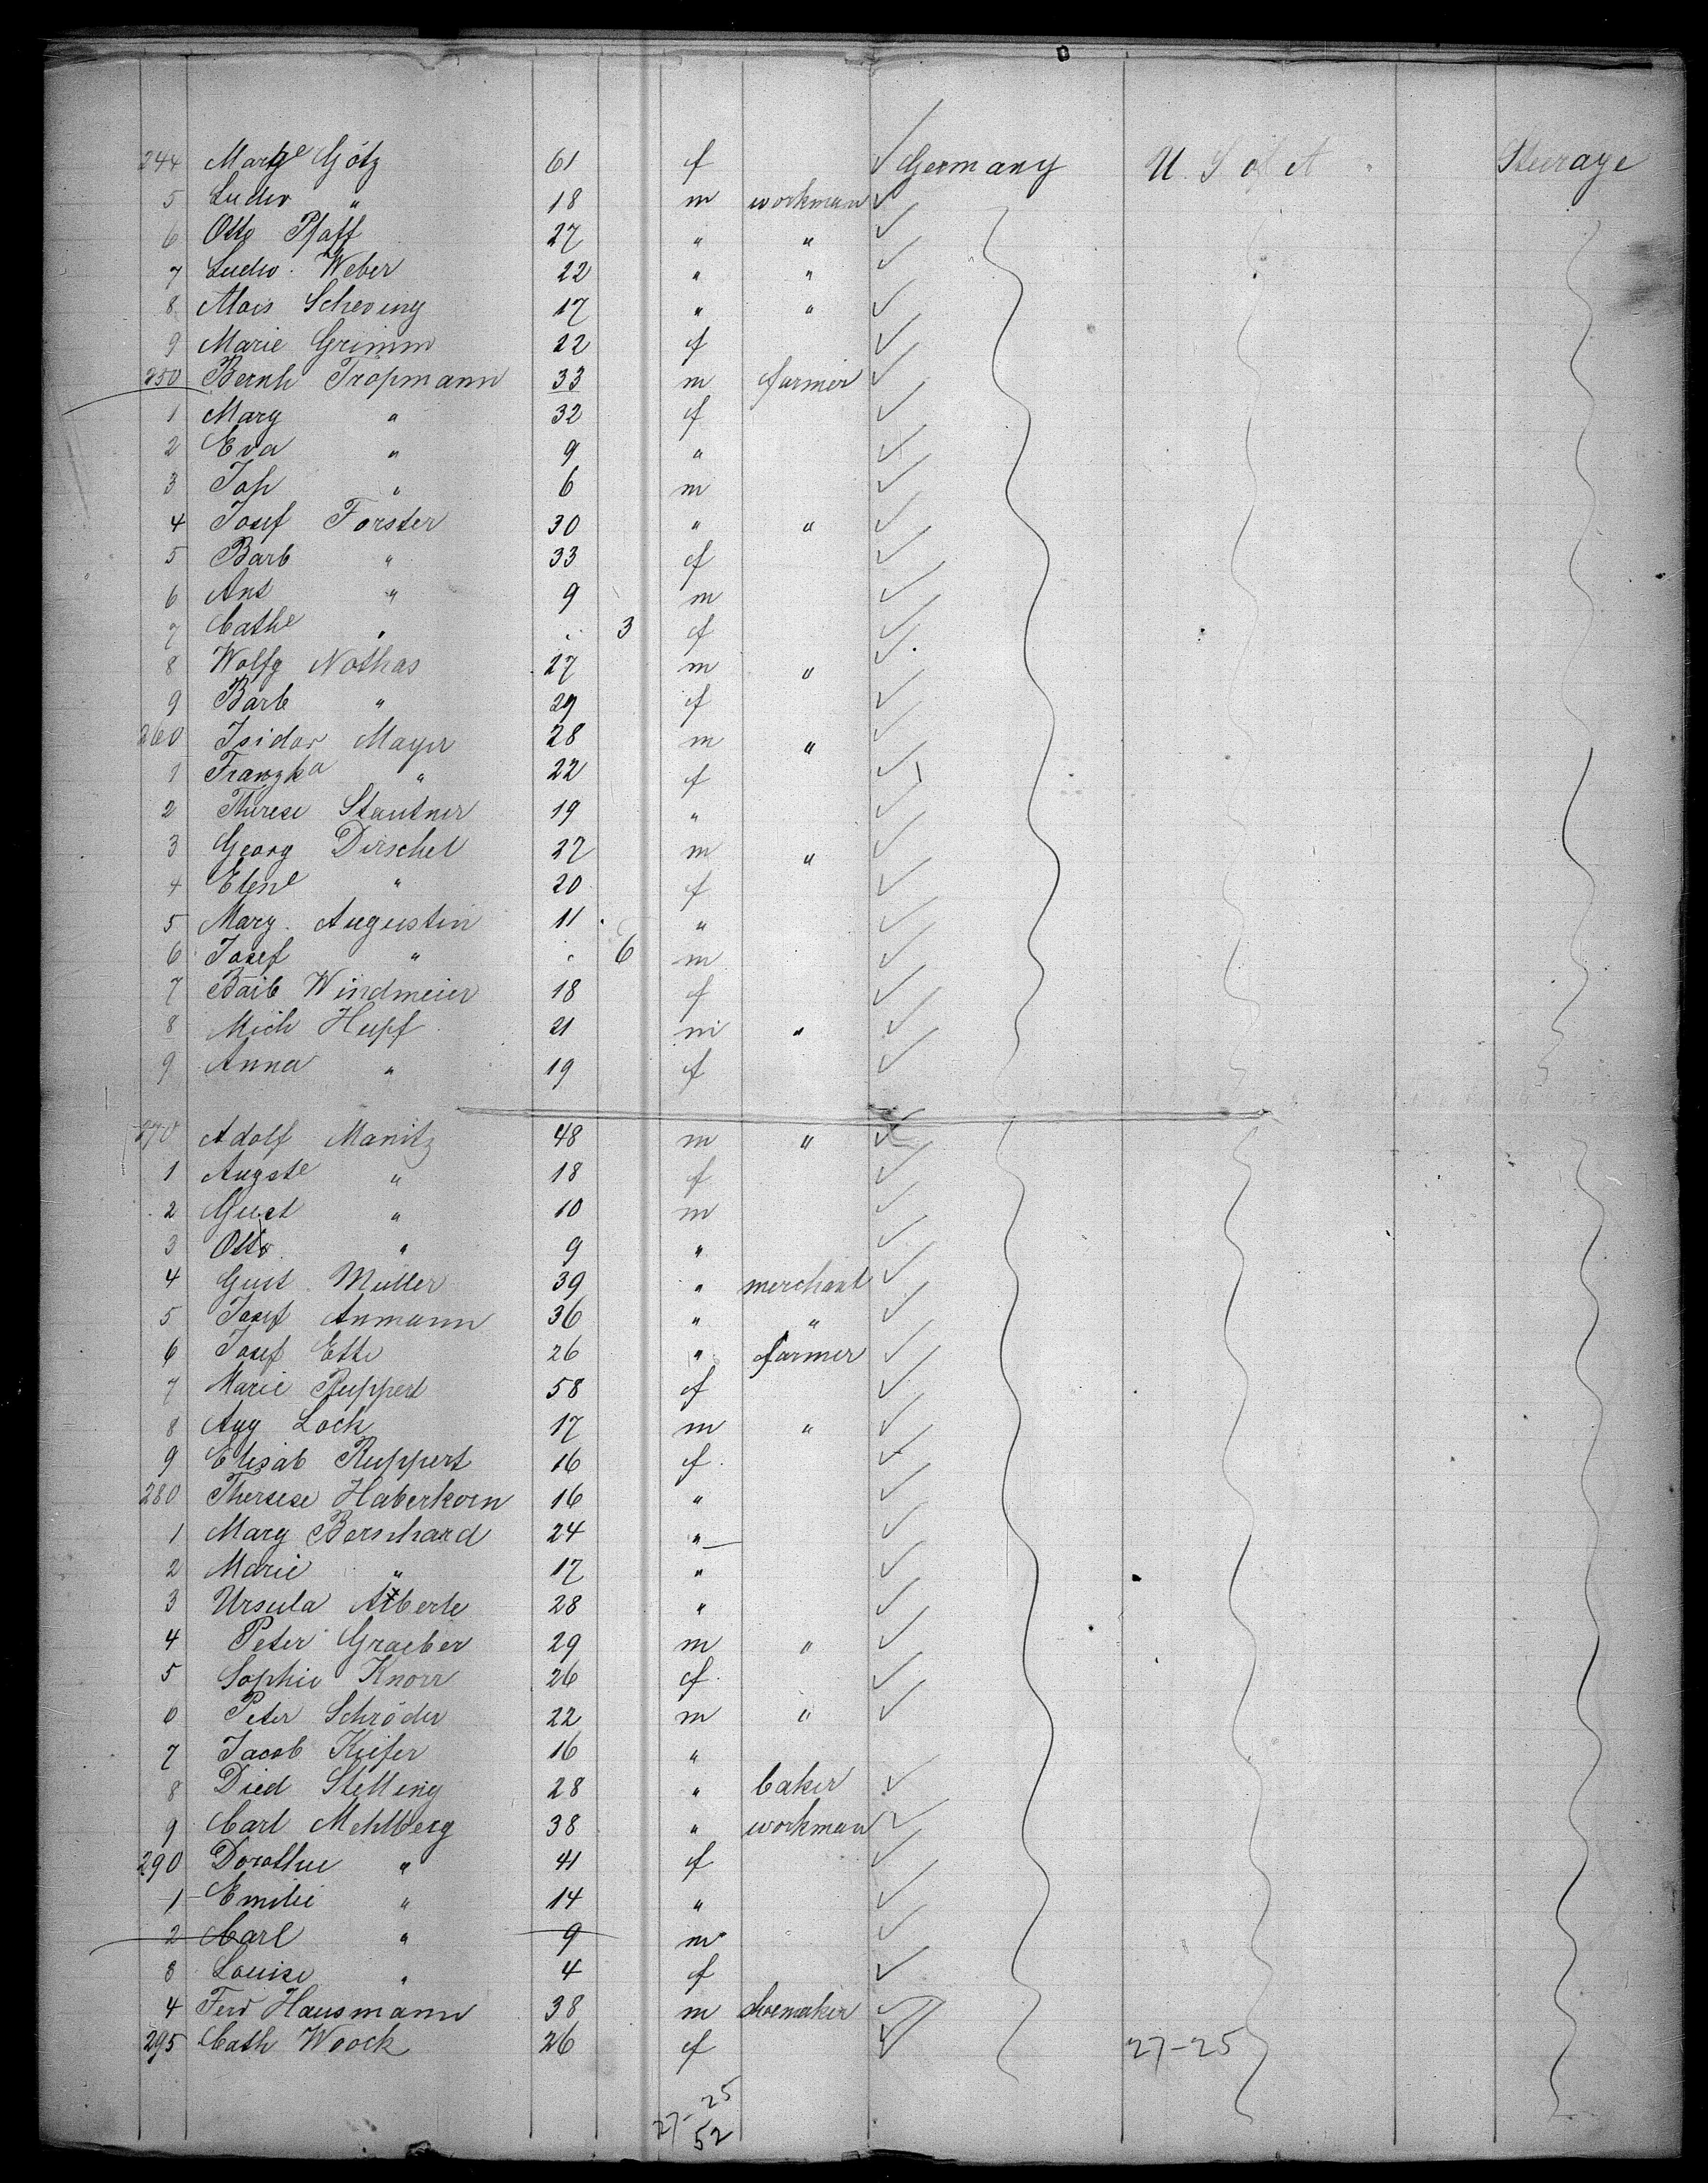 244 Marge Götz 61 f Germany U. S of A Steerage
5 Ludw " 18 m workman
6 Otto Pfaff 27 " "
7 Ludw. Weber 22 " "
8 Alois Schering 17 " "
9 Marie Grimm 22 f
250 Bernh Tropmann 33 m farmer
1 Marg " 32 f
2 Eva " 9 "
3 Joh " 6 m
4 Josef Forster 30 " "
5 Barb " 33 f
6 Ant " 9 m
7 Cathe " " 3 f
8 Wolfg Nothas 27 m "
9 Barb " 29 f
260 Isidor Mayer 28 m "
1 Franzka " 22 f
2 Therese Stautner 19 "
3 Georg Dirschel 27 m "
4 Elene " 20 f
5 Marg. Augustin 11 "
6 Josef " " 6 m
7 Barb Windmeier 18 f
8 Mich Hupf 21 m "
9 Anna " 19 f
270 Adolf Manitz 48 m "
1 Augste " 18 f
2 Gust " 10 m
3 Otto " 9 "
4 Gust. Muller 39 " merchant
5 Josef Anmann 36 " "
6 Josef Ette 26 " farmer
7 Marie Ruppert 58 f
8 Aug Lock 17 m "
9 Elisab Ruppert 16 f
280 Therese Haberkorn 16 "
1 Marg Bernhard 24 "
2 Marie " 17 "
3 Ursula Aberle 28 "
4 Peter Graeber 29 m "
5 Sophie Knorr 26 f
6 Peter Schröder 22 m "
7 Jacob Kiefer 16 "
8 Died Stelling 28 " baker
9 Carl Mehlberg 38 " workman
290 Dorothee " 41 f
1 Emilie " 14 "
2 Carl " 9 m
3 Louise " 4 f
4 Ferd Hausmann 38 m shoemaker
295 Cath Woock 26 f 27-25
27-25
52